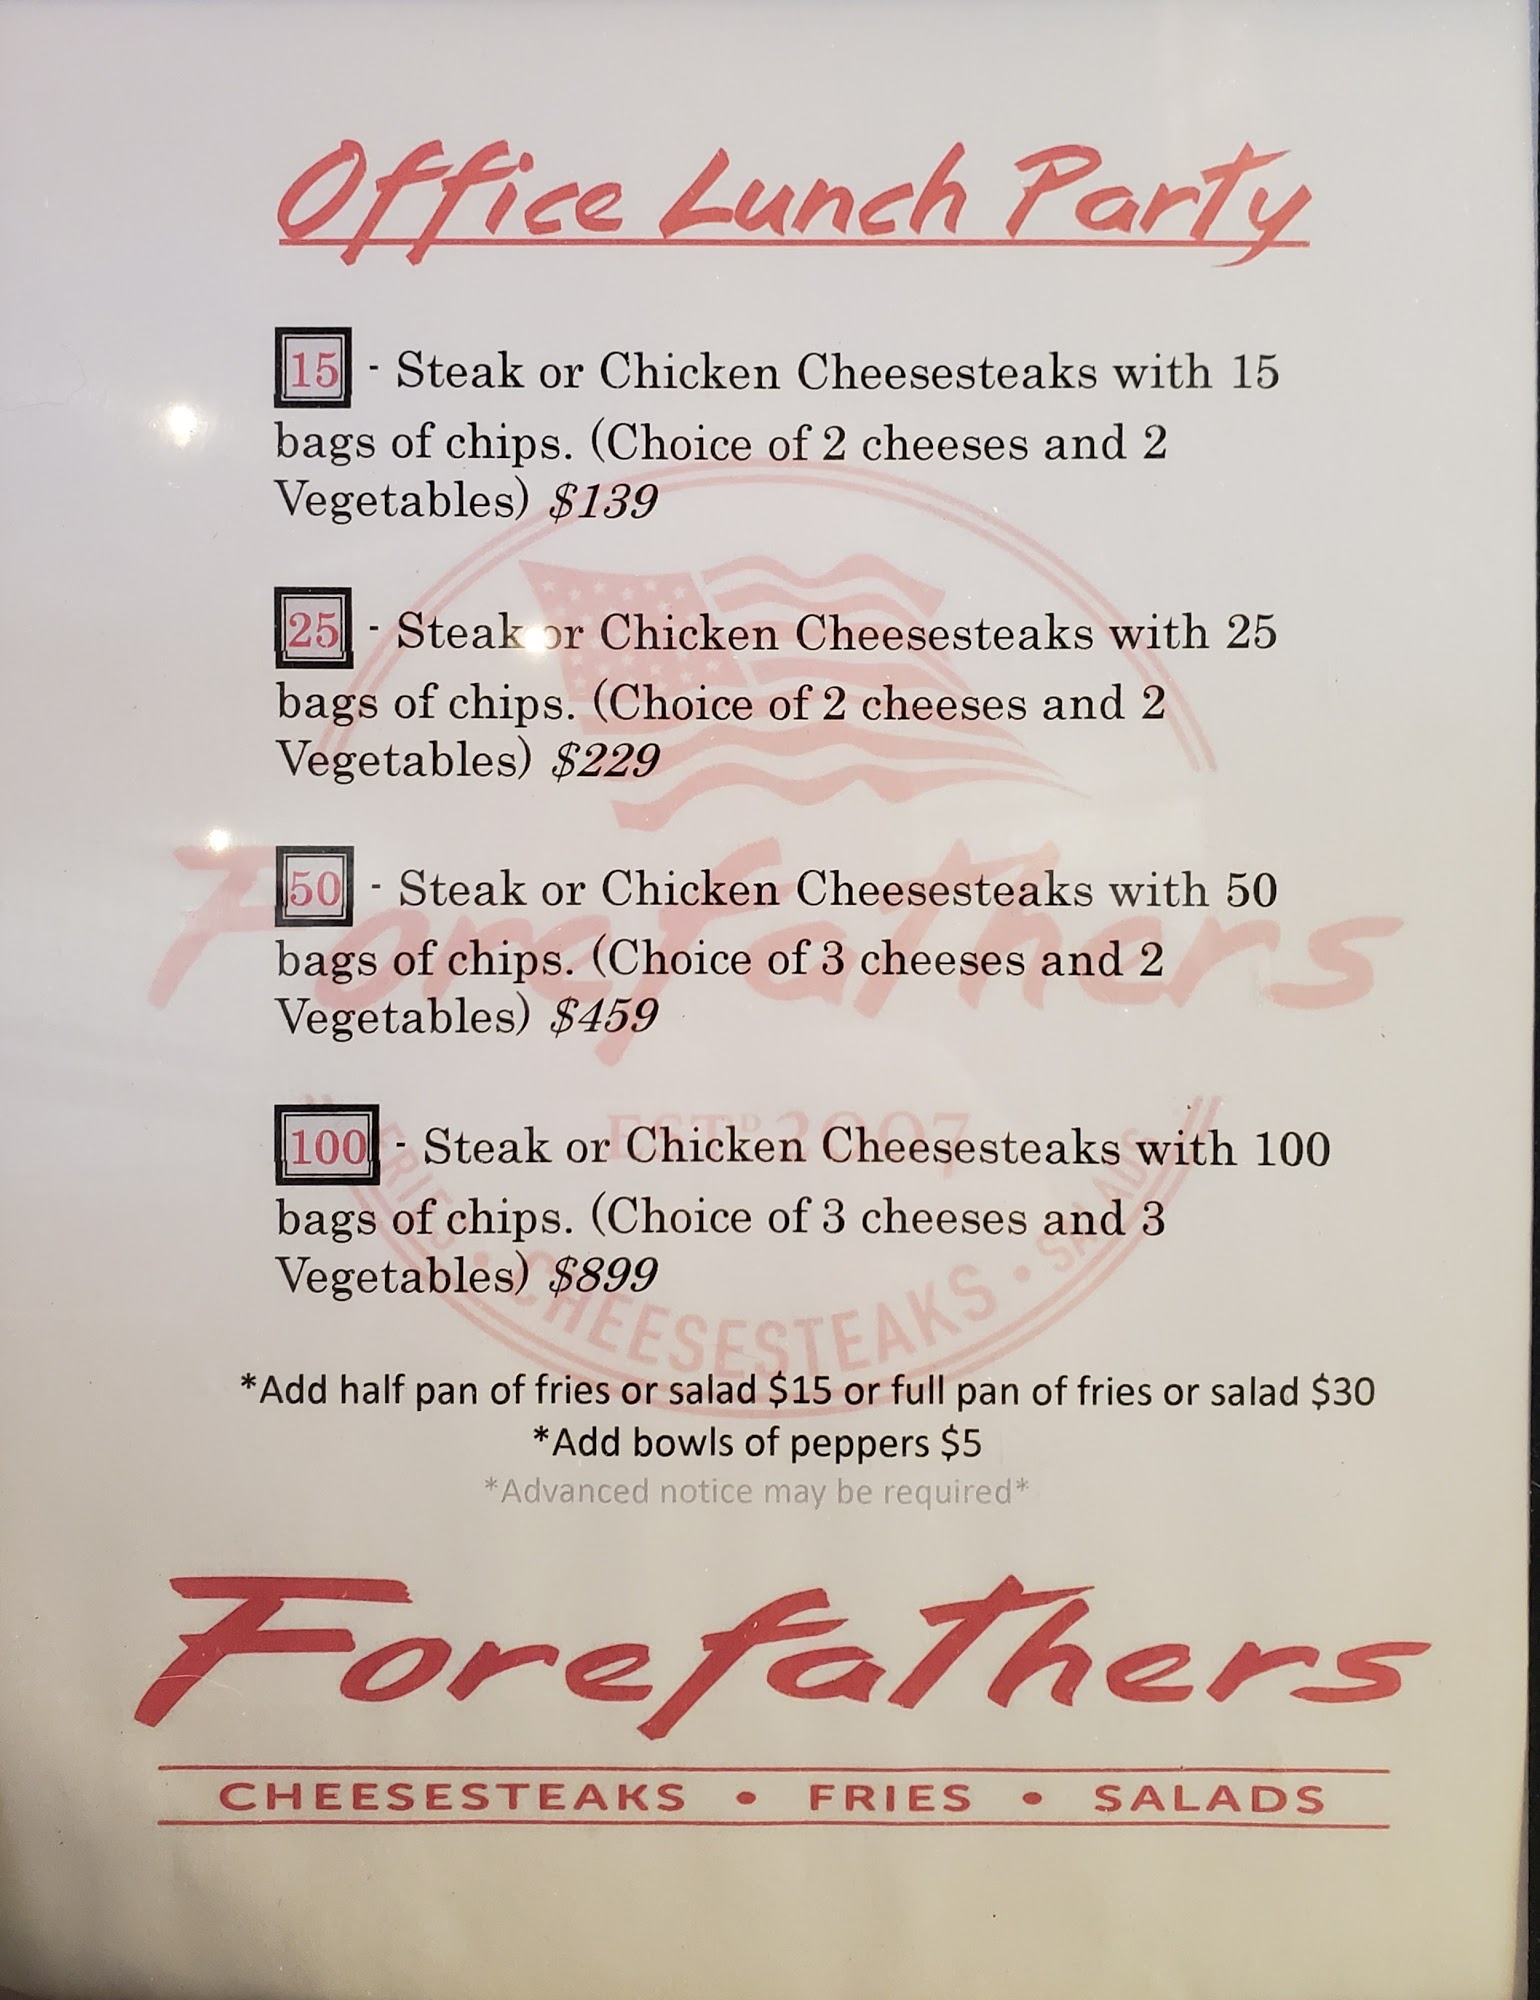 Office Lunch Party
15 - Steak or Chicken Cheesesteaks with 15
bags of chips. (Choice of 2 cheeses and 2
Vegetables) $139
25 - Steak or Chicken Cheesesteaks with 25
bags of chips. (Choice of 2 cheeses and 2
Vegetables) $229
50 - Steak or Chicken Cheesesteaks with 50
bags of chips. (Choice of 3 cheeses and 2
Vegetables) $459
100 - Steak or Chicken Cheesesteaks with 100
bags of chips. (Choice of 3 cheeses and 3
Vegetables) $899
Forefathers
ESTD 2007
FRIES • CHEESESTEAKS • SALADS
*Add half pan of fries or salad $15 or full pan of fries or salad $30
*Add bowls of peppers $5
*Advanced notice may be required*
Forefathers
CHEESESTEAKS • FRIES • SALADS